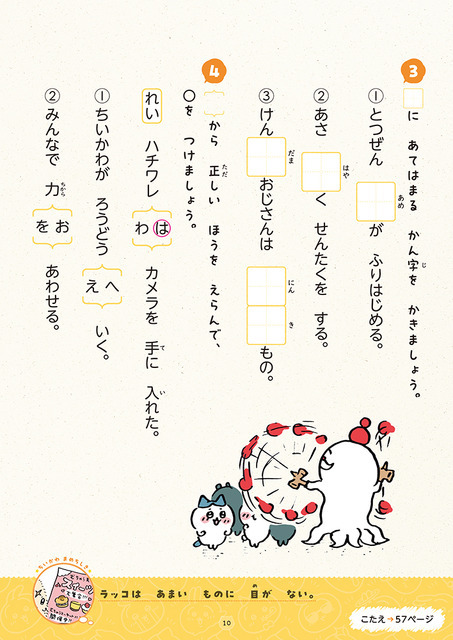 3
□に あてはまる かん字を かきましょう。
じ
① とつぜん □が ふりはじめる。
あめ
② あさ □く せんたくを する。
はや
③ けん□おじさんは □□もの。
だま
にん き
4
{ }から 正しい ほうを えらんで、
ただ
○を つけましょう。
れい ハチワレ{は わ}カメラを 手に 入れた。
て い
① ちいかわが ろうどう{へ え}いく。
② みんなで 力{お を}あわせる。
ちから
ちいかわ まめちしき
スイーツ
ラッコは あまい ものに 目が ない。
め
10
こたえ→57ページ